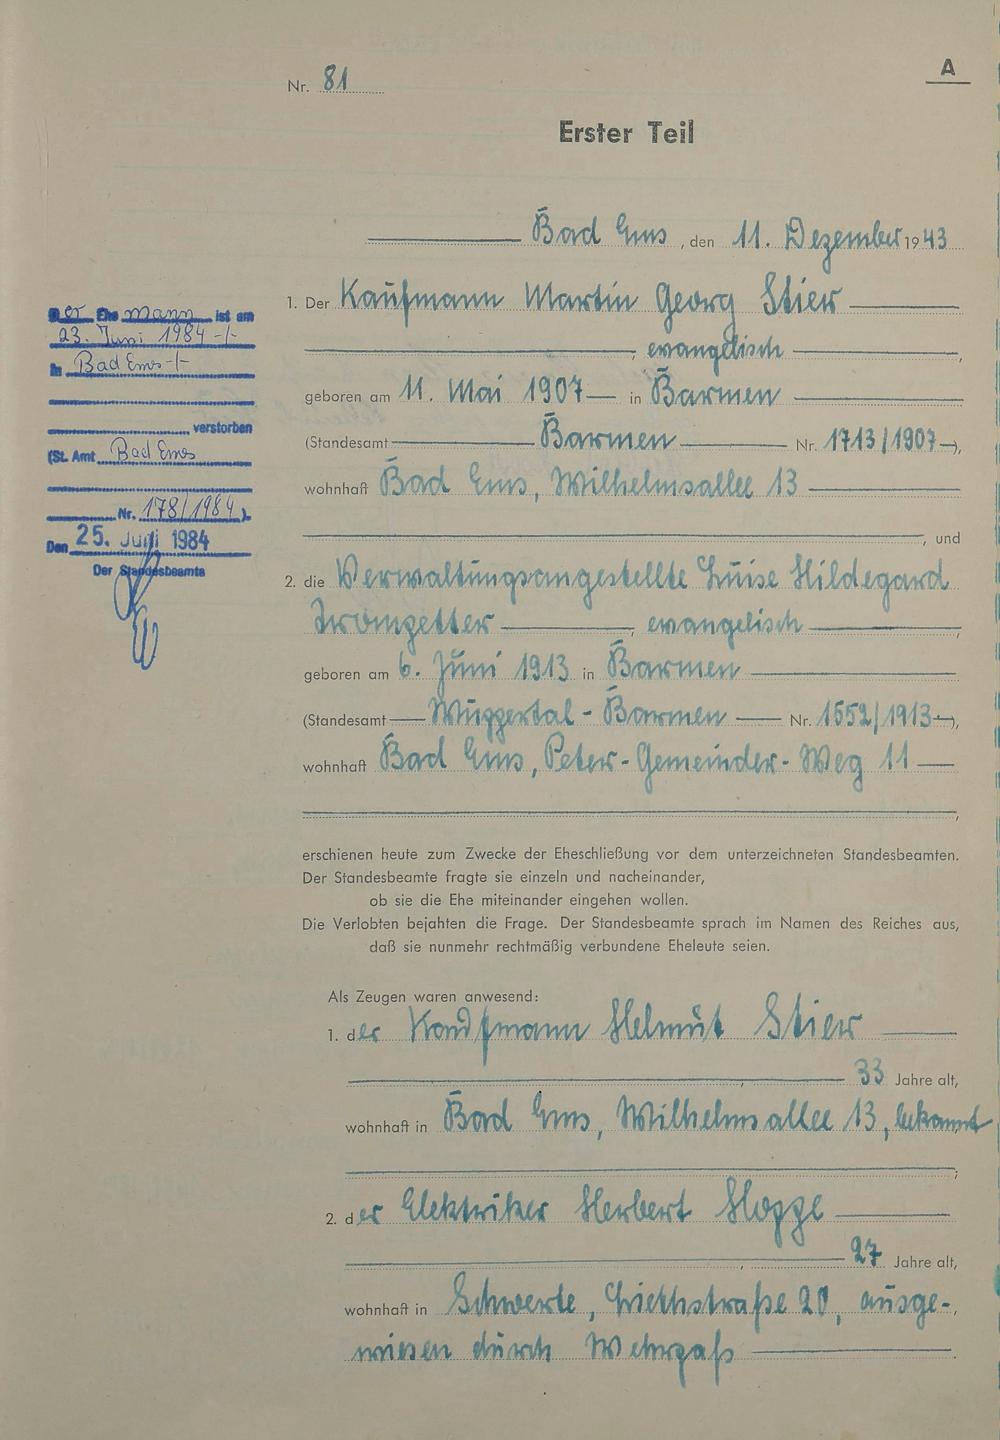 A
Nr. 81
Erster Teil
Bad Ems, den 11. Dezember 1943
1. Der Kaufmann Martin Georg Stier
, evangelisch,
geboren am 11. Mai 1907 in Barmen
(Standesamt Barmen Nr. 1713/1907),
wohnhaft Bad Ems, Wilhelmsallee 13
, und
2. die Verwaltungsangestellte Luise Hildegard
Trompetter, evangelisch,
geboren am 6. Juni 1913 in Barmen
(Standesamt Wuppertal-Barmen Nr. 1552/1913),
wohnhaft Bad Ems, Peter-Gemeinder-Weg 11
,
erschienen heute zum Zwecke der Eheschließung vor dem unterzeichneten Standesbeamten.
Der Standesbeamte fragte sie einzeln und nacheinander,
ob sie die Ehe miteinander eingehen wollen.
Die Verlobten bejahten die Frage. Der Standesbeamte sprach im Namen des Reiches aus,
daß sie nunmehr rechtmäßig verbundene Eheleute seien.
Als Zeugen waren anwesend:
1. der Kaufmann Helmut Stier
, 33 Jahre alt,
wohnhaft in Bad Ems, Wilhelmsallee 13, bekannt
;
2. der Elektriker Herbert Hoppe
, 27 Jahre alt,
wohnhaft in Schwerte, Liethstraße 20, ausge-,
wiesen durch Wehrpaß
Der Ehemann ist am
23. Juni 1984 -/-
in Bad Ems -/-
verstorben
(St. Amt Bad Ems
Nr. 178/1984).
Den 25. Juni 1984
Der Standesbeamte